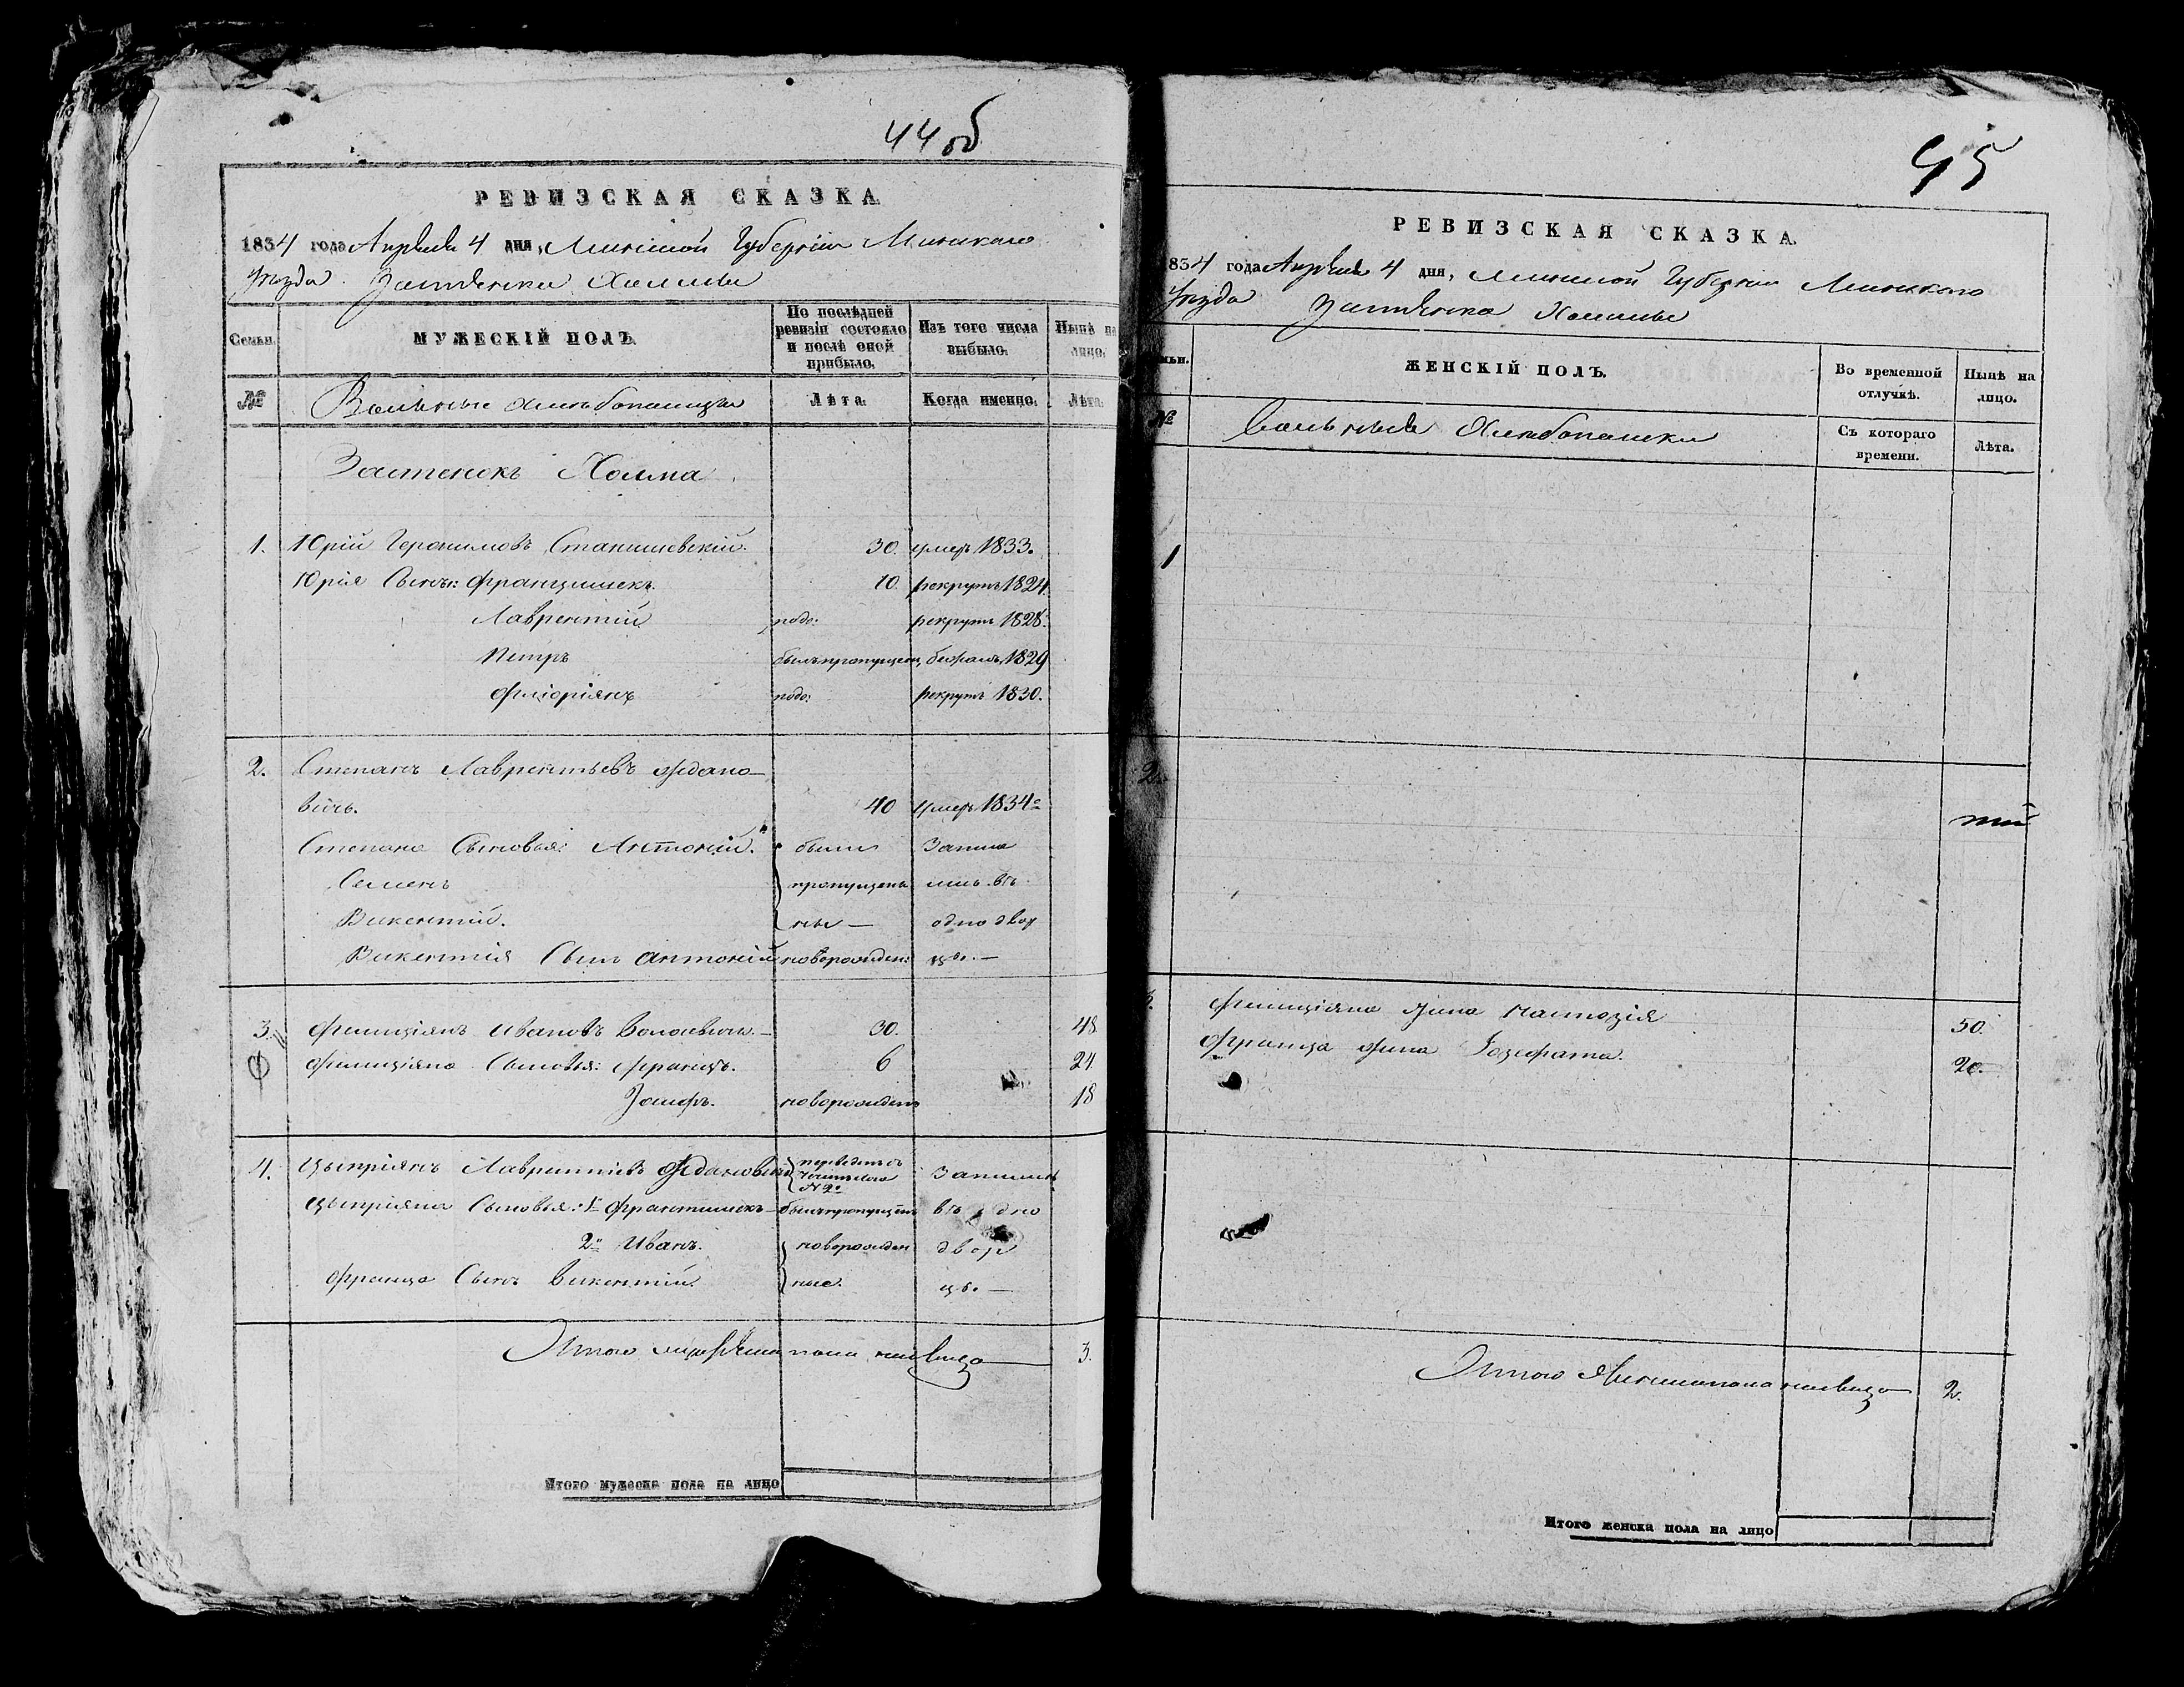 44 об
РЕВИЗСКАЯ СКАЗКА
1834 года Апреля 4 дня, Минской Губернии Минскаго
Уезда. Застенка Холмы
Семьи.
МУЖЕСКІЙ ПОЛЪ.
По послѣдней ревизіи состояло и послѣ оной прибыло.
Изъ того числа выбыло.
Нынѣ на лицо.
№
Вольные хлебопашцы
Лѣта.
Когда именно.
Лѣта.
Застенокъ Холма
1. Юрій Геронимовъ Станишевскій. 30. умеръ 1833.
Юрія Сынъ: Францишекъ. 10. рекрутъ 1824.
Лаврентій подо: рекрутъ 1828.
Петръ былъ пропущен, бежалъ 1829
Флоріянъ подо: рекрутъ 1830.
2. Степанъ Лаврентьевъ Ждано–
вичъ. 40 умеръ 1834
Степана Сыновья: Антоній. были Запис
Семенъ пропущен лись въ
Викентій. ны — однодвор
Викентія Сынъ Антоній новорожден: цы. —
3. Фелиціянъ Ивановъ Волосевичъ. — 30. 48
Фелиціяна Сыновья: Францъ. 6 24
Іосифъ. новорожденъ 18
4. Цыпріянъ Лаврентіевъ Ждановичъ переведенъ съ
№ 2 Записались
Цыпріяна Сыновья: 1й Франтишекъ — былъ пропущенъ въ одно
2й Иванъ. новорожден двор
Франца Сынъ Викентій. ные. цы. —
Итого мужеска пола налицо 3.
Итого мужеска пола на лицо
45
РЕВИЗСКАЯ СКАЗКА.
834 года Апреля 4 дня, Минской Губернии Минскаго
Уезда Застенка Холмы
мьи.
ЖЕНСКІЙ ПОЛЪ.
Во временной отлучкѣ.
Нынѣ на лицо.
№
Вольные Хлебопашки
Съ котораго времени.
Лѣта.
1
2.
Фелиціяна Жина Настазія 50.
Франца Жина Іозефата. 20.
Итого Женска пола налицо 2.
Итого женска пола на лицо